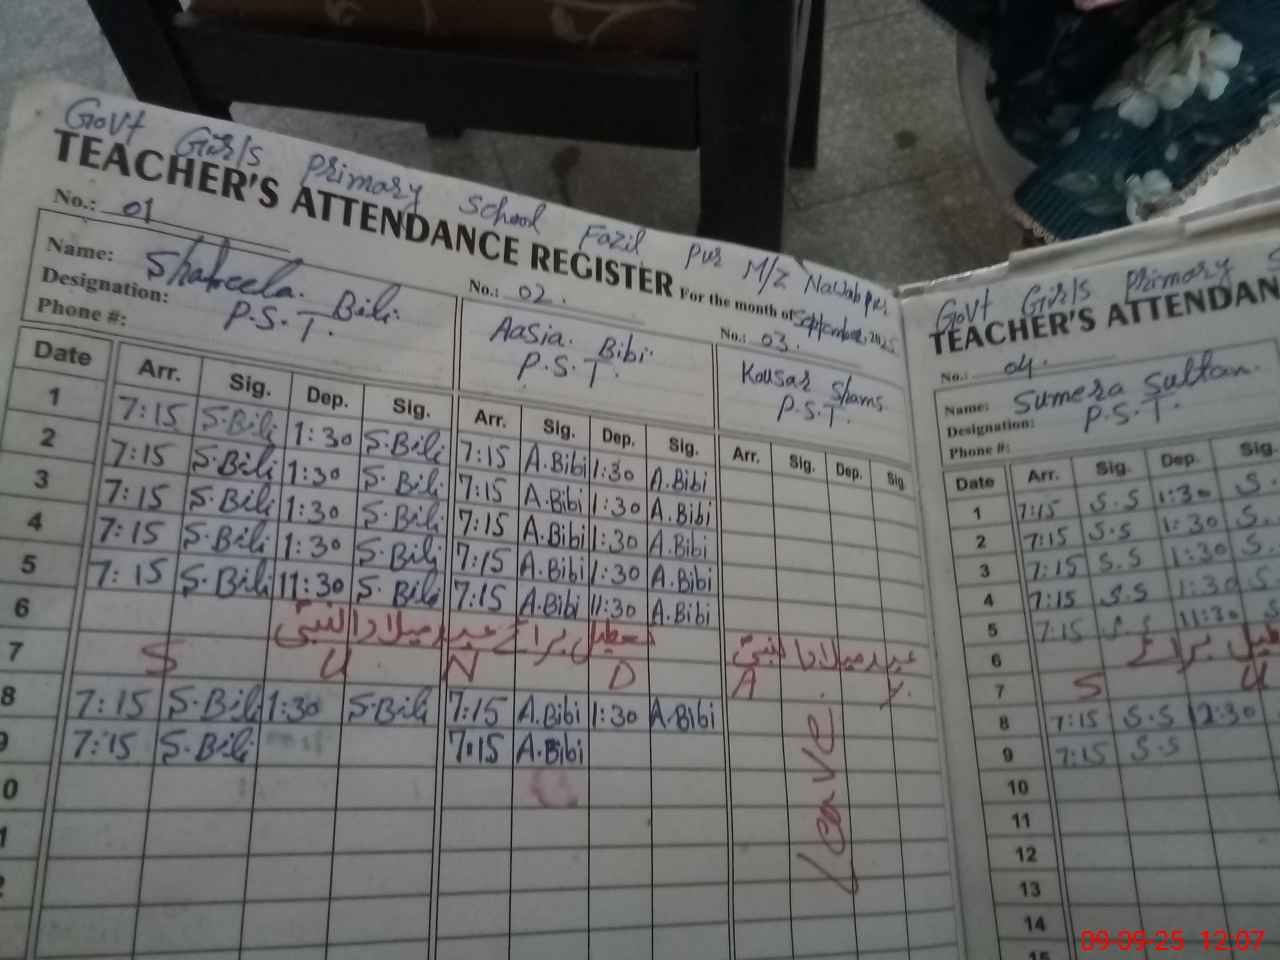 Govt Girls Primary School Fazil pur M/Z Nawab pur
TEACHER'S ATTENDANCE REGISTER For the month of September, 2025
No.: 01
Name: Shakeela Bibi
Designation: P.S.T.
Phone #:
No.: 02.
Aasia Bibi
P.S.T.
No.: 03.
Kousar Shams
P.S.T.
Date Arr. Sig. Dep. Sig. Arr. Sig. Dep. Sig. Arr. Sig. Dep. Sig
1 7:15 S.Bibi 1:30 S.Bibi 7:15 A.Bibi 1:30 A.Bibi
2 7:15 S.Bibi 1:30 S.Bibi 7:15 A.Bibi 1:30 A.Bibi
3 7:15 S.Bibi 1:30 S.Bibi 7:15 A.Bibi 1:30 A.Bibi
4 7:15 S.Bibi 1:30 S.Bibi 7:15 A.Bibi 1:30 A.Bibi
5 7:15 S.Bibi 11:30 S.Bibi 7:15 A.Bibi 11:30 A.Bibi
6 تعطیل برائے عید میلاد النبیؐ عید میلاد النبیؐ
7 S U N D A Y
8 7:15 S.Bibi 1:30 S.Bibi 7:15 A.Bibi 1:30 A.Bibi
9 7:15 S.Bibi 7:15 A.Bibi
0
1
2
Leave
Govt Girls Primary S
TEACHER'S ATTENDAN
No.: 04.
Name: Sumera Sultan
Designation: P.S.T.
Phone #:
Date Arr. Sig. Dep. Sig.
1 7:15 S.S 1:30 S.
2 7:15 S.S 1:30 S.
3 7:15 S.S 1:30 S.
4 7:15 S.S 1:30 S
5 7:15 S.S 11:30 S
6 تعطیل برائے
7 S U
8 7:15 S.S 12:30
9 7:15 S.S
10
11
12
13
14
15
09-09-25 12:07